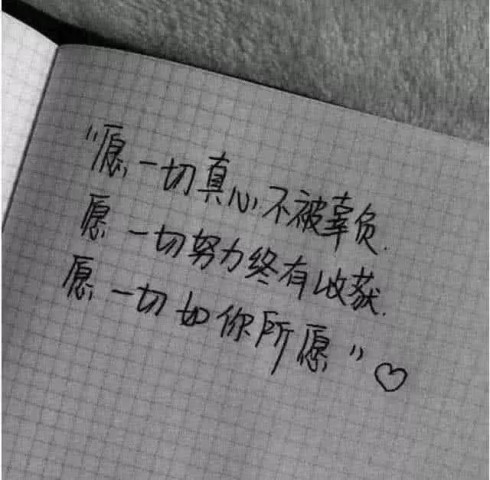 “愿一切真心不被辜负.
愿一切努力终有收获.
愿一切如你所愿”♡